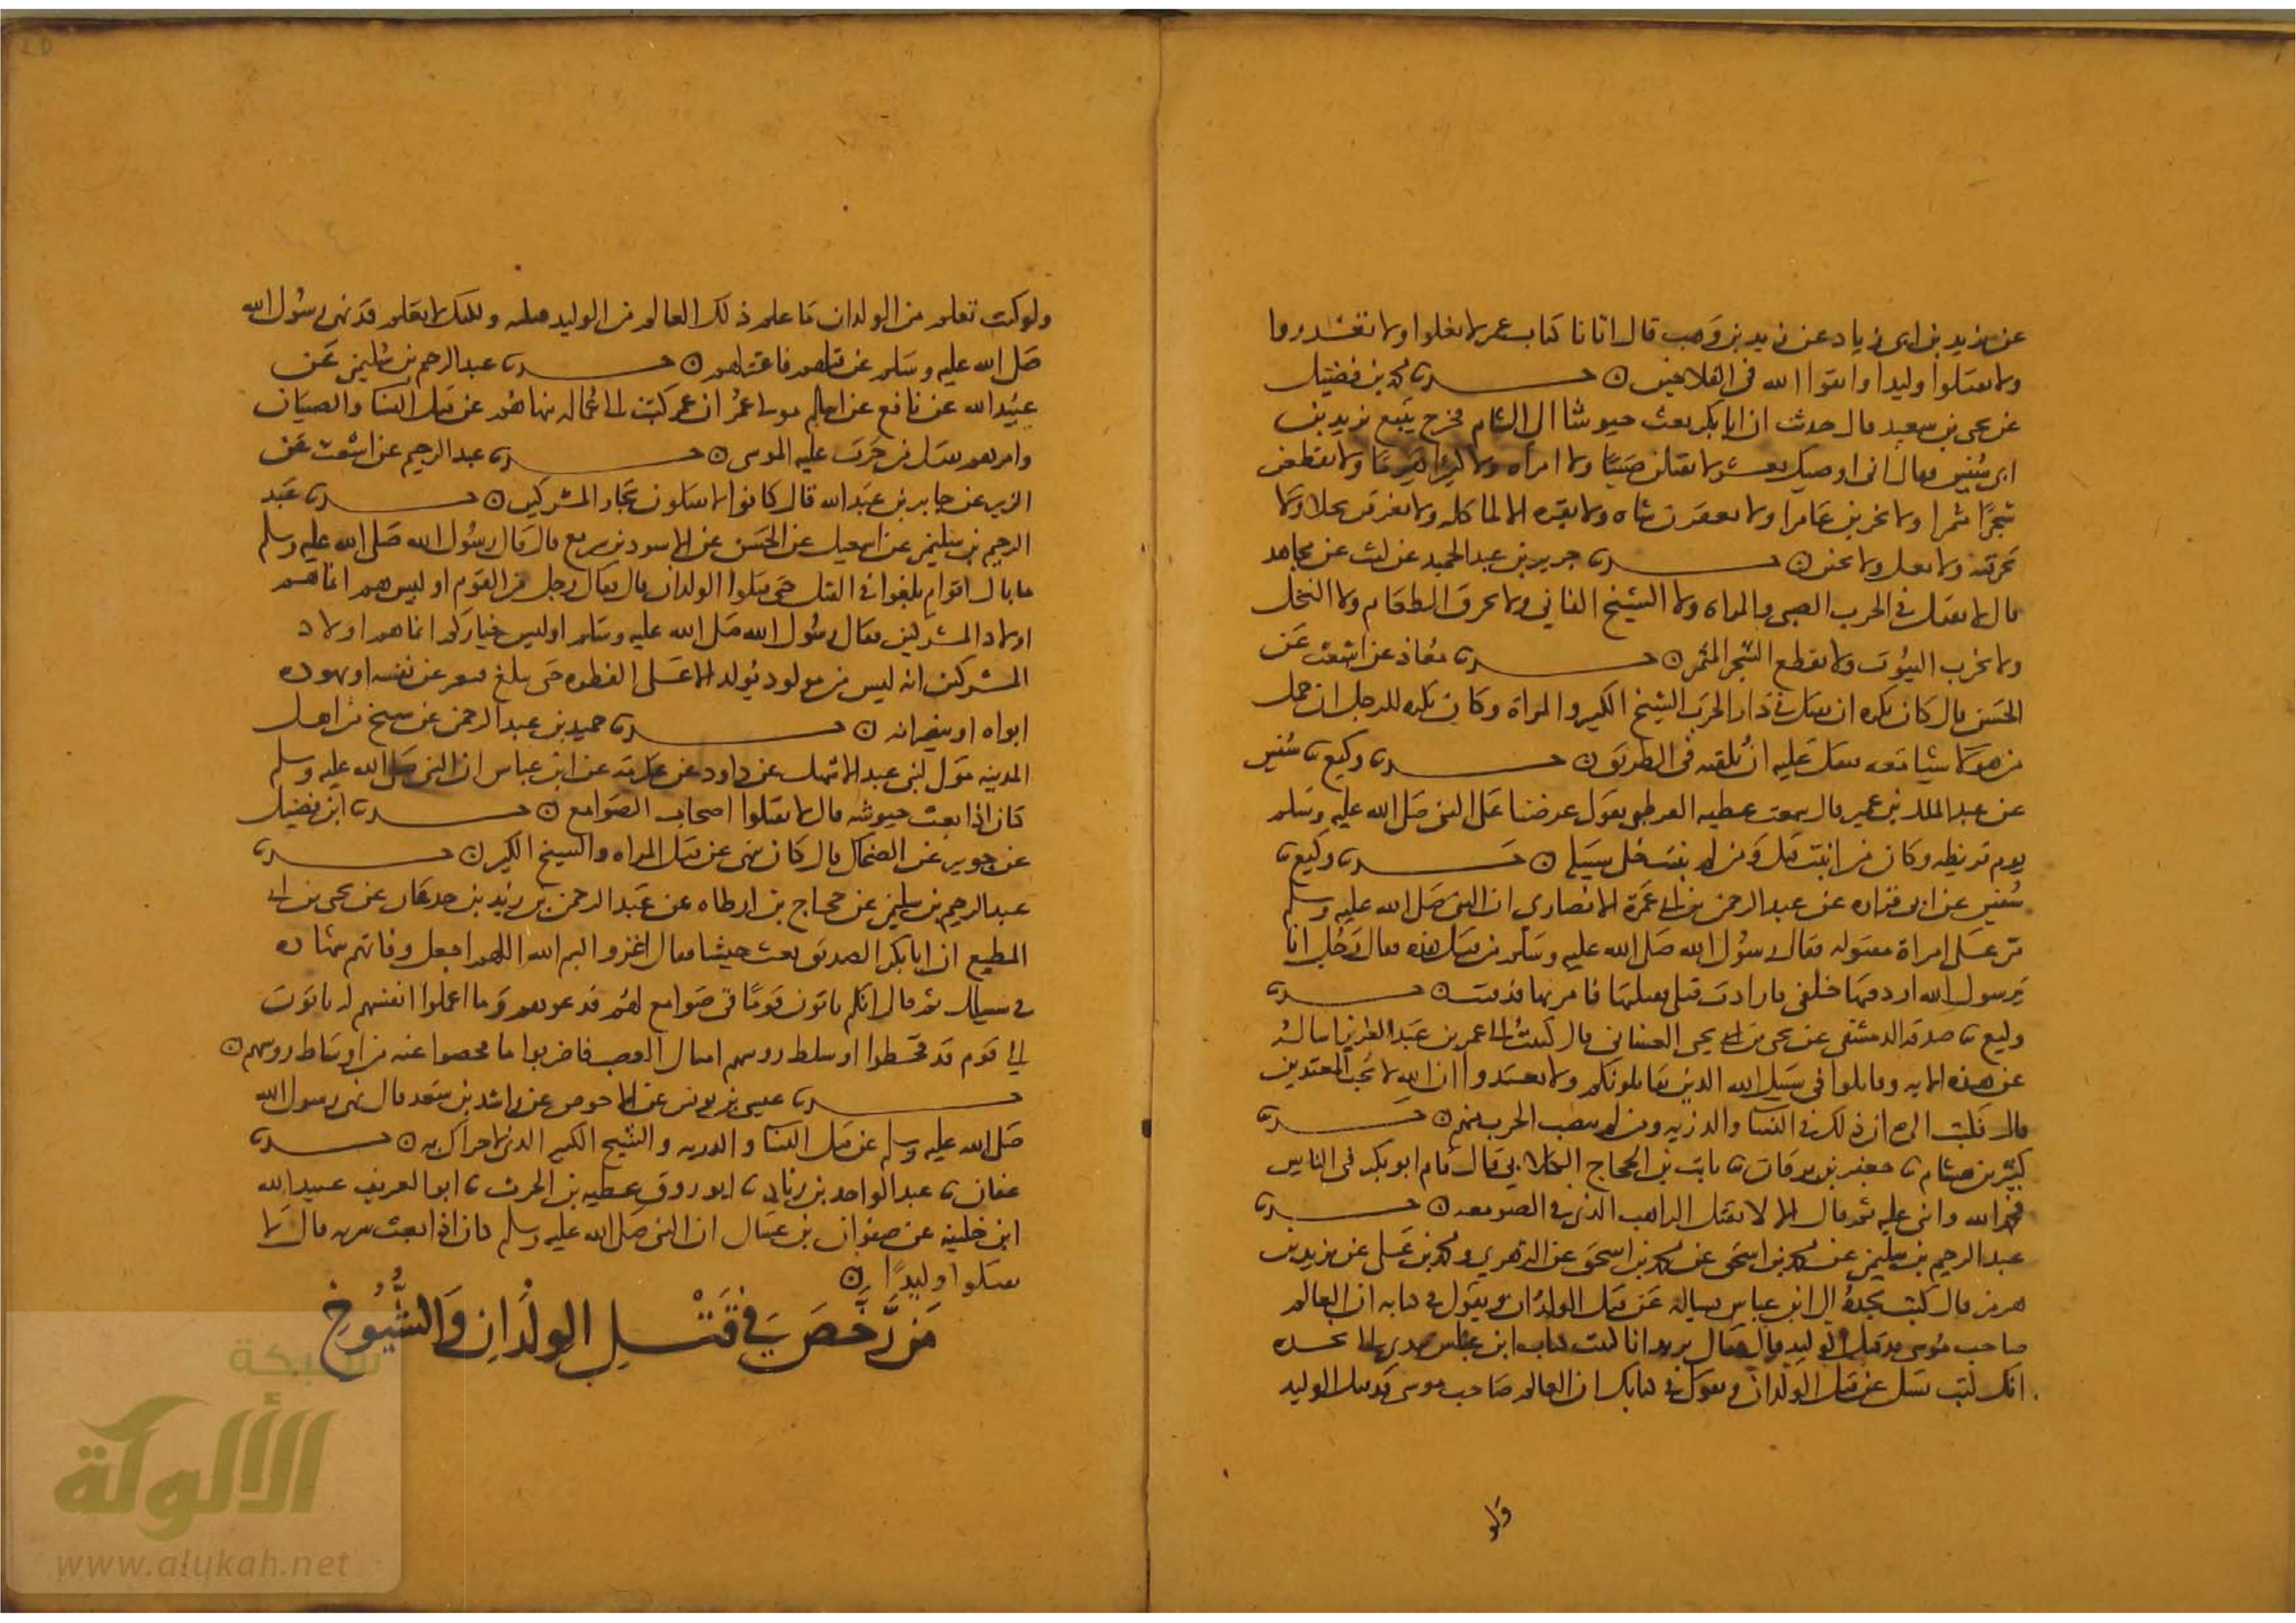 عن يزيد بن ابى زياد عن زيد بن وهب قال اتانا كتاب عمر لا تغلوا ولا تغدروا
ولا تقتلوا وليدا واتقوا الله فى الفلاحين ه حدثنا محمد بن فضيل
عن يحيى بن سعيد قال حدثت ان ابا بكر بعث جيوشا الى الشام فخرج يتبع يزيد بن
ابى سفين فقال انى اوصيك بعشر لا تقتلن صبيا ولا امراه ولا كبيرا هرما ولا تقطعن
شجرا مثمرا ولا تخربن عامرا ولا تعقرن شاه ولا بقره الا لماكله ولا تغرقن نحلا ولا
تحرقنه ولا تغلل ولا تجبن ه حدثنا جرير بن عبد الحميد عن ليث عن مجاهد
قال لا يقتل فى الحرب الصبى ولا المراه ولا الشيخ الفانى ولا يحرق الطعام ولا النخل
ولا تخرب البيوت ولا يقطع الشجر المثمر ه حدثنا معاذ عن اشعث عن
الحسن قال كان يكره ان يقتل فى دار الحرب الشيخ الكبير والمراة وكان يكره للرجل ان حمل
من هولا شيا معه فثقل عليه ان يلقيه فى الطريق ه حدثنا وكيع ثنا سفين
عن عبد الملك بن عمير قال سمعت عطيه القرظى يقول عرضنا على النبى صلى الله عليه وسلم
يوم قريظه وكان من انبت قتل ومن لم ينبت خلى سبيله ه حدثنا وكيع ثنا
سفين عن ابى فزاره عن عبد الرحمن بن ابى عمرة الانصارى ان النبى صلى الله عليه وسلم
مر على امراة مقتوله فقال رسول الله صلى الله عليه وسلم من قتل هذه فقال رجل انا
يرسول الله اردفتها خلفى فارادت قتلى فقتلتها فامر بها فدفنت ه حدثنا
وكيع ثنا صدقه الدمشقى عن يحيى بن يحيى الغسانى قال كتبت الى عمر بن عبد العزيز اساله
عن هذه الايه وقاتلوا فى سبيل الله الذين يقاتلونكم ولا تعتدوا ان الله لا يحب المعتدين
قال فكتب الى ان ذلك فى النسا والذريه ومن لم ينصب الحرب منهم ه حدثنا
كثير بن هشام ثنا جعفر بن برقان ثنا ثابت بن الحجاج الكلابى قال قام ابو بكر فى الناس
فحمد الله واثنى عليه ثم قال الا لا يقتل الراهب الذى فى الصومعه ه حدثنا
عبد الرحيم بن سليمن عن محمد بن اسحق عن محمد بن اسحق عن الزهري ومحمد بن على عن يزيد بن
هرمز قال كتب نجدة الى ابن عباس يساله عن قتل الولدان ويقول فى كتابه ان العالم
صاحب موسى قد قتل الوليد قال فقال يزيد انا كتبت كتاب ابن عباس بيدى الى نجده
انك كتبت تسل عن قتل الولدان وتقول فى كتابك ان العالم صاحب موسى قد قتل الوليد
ولو
ولو كنت تعلم من الولدان ما علم ذلك العالم من الوليد قتلته ولكنك لا تعلم قد نهى رسول الله
صلى الله عليه وسلم عن قتلهم فاعتزلهم ه حدثنا عبد الرحيم بن سليمن عن
عبيد الله عن نافع عن اسلم مولى عمر ان عمر كتب الى عماله ينهاهم عن قتل النسا والصبيان
وامرهم بقتل من جرت عليه الموسى ه حدثنا عبد الرحيم عن اشعث عن
ابى الزبير عن جابر بن عبد الله قال كانوا لا يقتلون تجار المشركين ه حدثنا عبد
الرحيم بن سليمن عن اسمعيل عن الحسن عن الاسود بن سريع قال قال رسول الله صلى الله عليه وسلم
ما بال اقوام بلغوا فى القتل حتى قتلوا الولدان قال فقال رجل من القوم او ليس هم انما هم
اولاد المشركين فقال رسول الله صلى الله عليه وسلم اوليس خياركم انما هم اولاد
المشركين انه ليس من مولود يولد الا على الفطره حتى يبلغ فيعبر عن نفسه او يهوده
ابواه او ينصرانه ه حدثنا حميد بن عبد الرحمن عن شيخ من اهل
المدينه مولى لبنى عبد الاشهل عن داود عن عكرمه عن ابن عباس ان النبى صلى الله عليه وسلم
كان اذا بعث جيوشه قال لا تقتلوا اصحاب الصوامع ه حدثنا ابن فضيل
عن جويبر عن الضحاك قال كان ينهى عن قتل المراه والشيخ الكبير ه حدثنا
عبد الرحيم بن سليمن عن حجاج بن ارطاه عن عبد الرحمن بن زيد بن جدعان عن يحيى بن ابى
المطيع ان ابا بكر الصديق بعث جيشا فقال اغزوا بسم الله اللهم اجعل وفاتهم شهاده
فى سبيلك ثم قال انكم تاتون قوما فى صوامع لهم فدعوهم وما اعملوا انفسهم له وتاتون
الى قوم قد فحصوا اوساط روسهم امثال العصب فاضربوا ما فحصوا عنه من اوساط روسهم ه
حدثنا عيسى بن يونس عن الاحوص عن راشد بن سعد قال نهى رسول الله
صلى الله عليه وسلم عن قتل النسا والذريه والشيخ الكبير الذى لا حراك به ه حدثنا
عفان ثنا عبد الواحد بن زياد ثنا ابو روق عطيه بن الحرث ثنا ابو الغريف عبيد الله
ابن خليفه عن صفوان بن عسال ان النبى صلى الله عليه وسلم كان اذا بعث سريه قال لا
تقتلوا وليدا ه
من رخص في قتل الولدان والشيوخ
شبكة
الألوكة
www.alukah.net